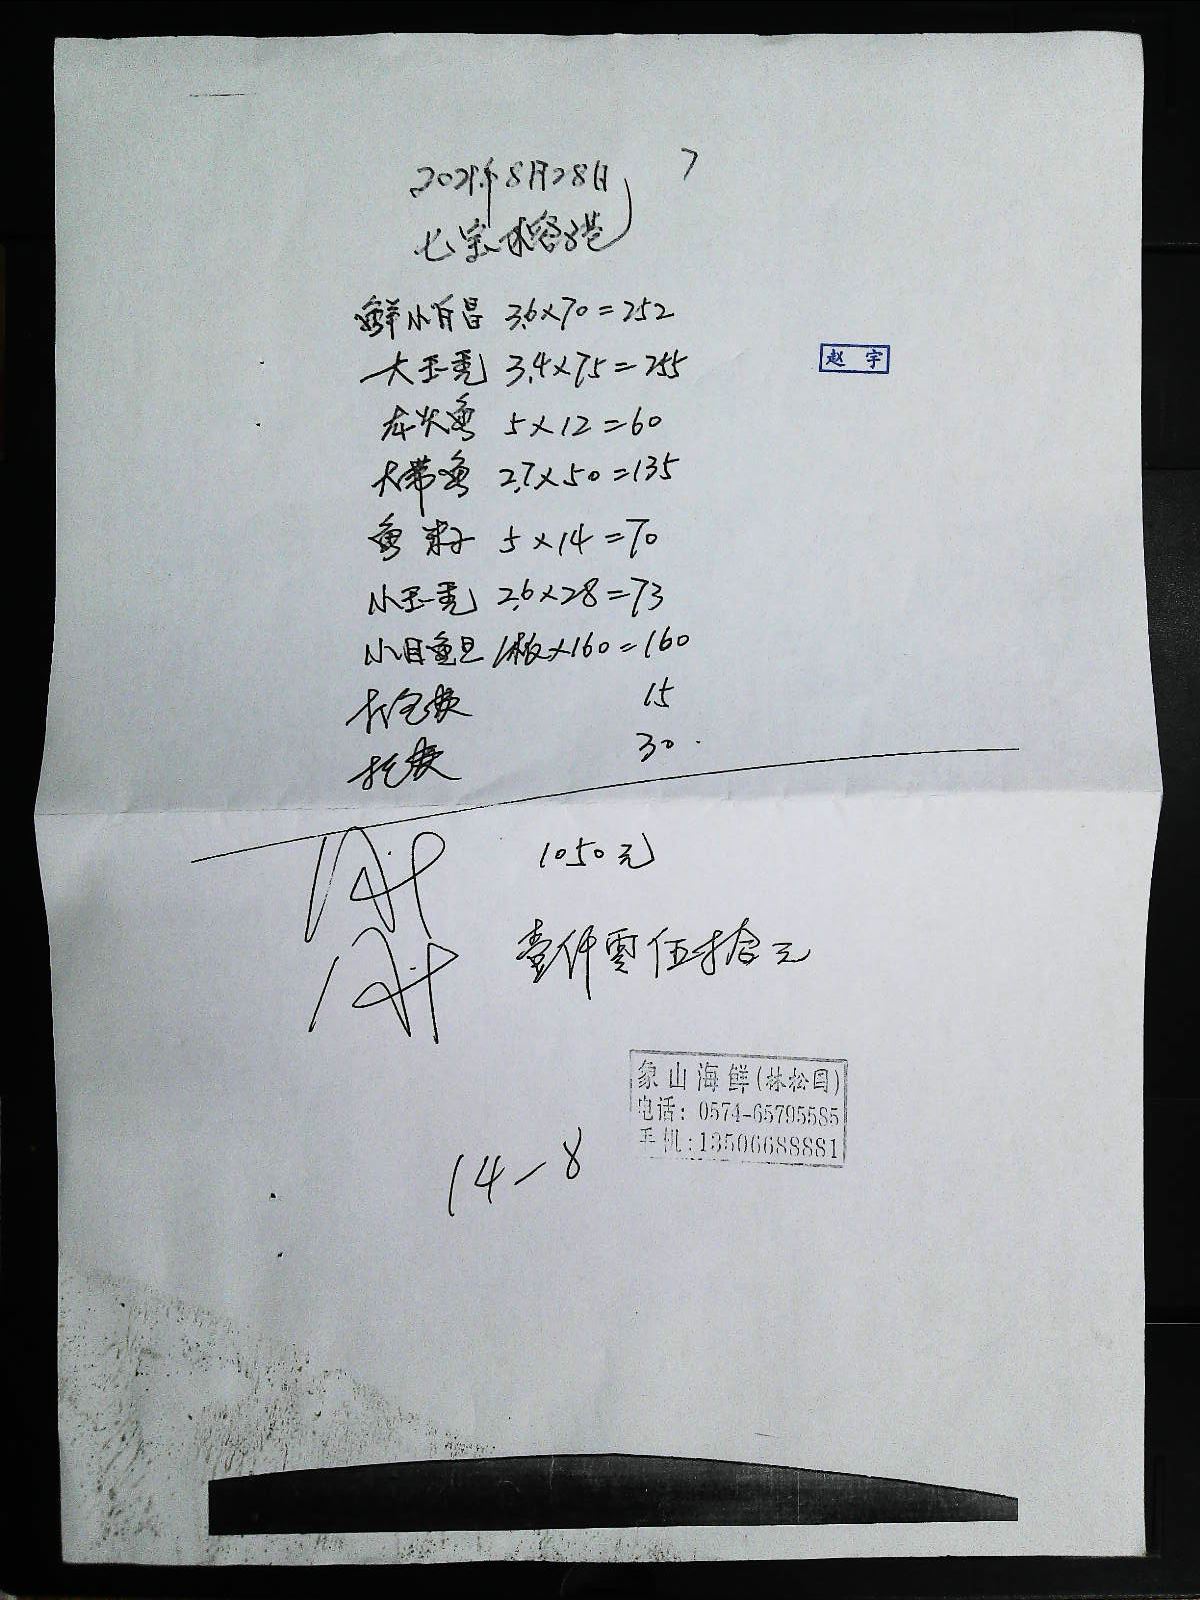 2021年8月28日
七宝稻香巷
鲜小白昌 3.6×70=252
大玉秃 3.4×75=255
龙头鱼 5×12=60
大带鱼 2.7×50=135
鱼籽 5×14=70
小玉秃 2.6×28=73
小目鱼旦 1板×160=160
打包费 15
托费 30
赵宇
1050元
壹仟零伍拾元
象山海鲜(林松国)
电话:0574-65795585
手机:13506688881
14-8